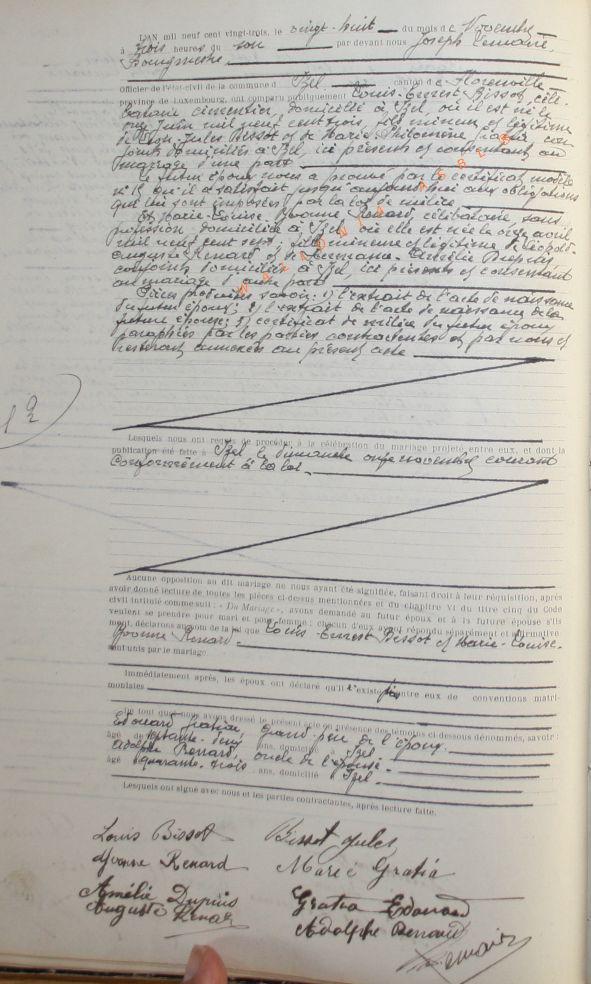 L'AN mil neuf cent vingt-trois, le vingt-huit du mois de Novembre
à trois heures du soir par devant nous Joseph Lemaire,
Bourgmestre
Officier de l'état-civil de la commune d'Izel, canton de Florenville
province de Luxembourg, ont comparu publiquement Louis-Ernest Bissot, céli-
bataire cimentier, domicilié à Izel, où il est né le
onze Juin mil neuf cent trois, fils mineur et légitime
de Jules Bissot et de Marie Philomène Gratia con
joints domiciliés à Izel, ici présents et consentant au
mariage d'une part
Le futur époux nous a prouvé par le certificat modèle
qu'il a satisfait jusqu'aujourd'hui aux obligations
qui lui sont imposées par la loi de milice
Et Marie-Louise-Yvonne Renard, célibataire sans
profession domiciliée à Izel où elle est née le onze avril
mil neuf cent sept; fille mineure et légitime de Léopold-
Auguste Renard et de Amélie Dupuis
conjoints domiciliés à Izel, ici présents et consentant
au mariage d'autre part
Pièces produites savoir: 1) l'extrait de l'acte de naissance
du futur époux; 2) l'extrait de l'acte de naissance de la
future épouse; 3) certificat de milice du futur époux
paraphés par les parties contractantes et par nous et
resteront annexés au présent acte
Lesquels nous ont requis de procéder à la célébration du mariage projeté entre eux, et dont la
publication été faite à Izel le dimanche onze novembre courant
Conformément à la loi.
Aucune opposition au dit mariage ne nous ayant été signifiée, faisant droit à leur réquisition, après
avoir donné lecture de toutes les pièces ci-dessus mentionnées et du chapitre VI du titre cinq du Code
civil intitulé comme suit : « Du Mariage », avons demandé au futur époux et à la future épouse s'ils
veulent se prendre pour mari et pour femme ; chacun d'eux ayant répondu séparément et affirmative
ment, déclarons au nom de la loi que Louis-Ernest Bissot et Marie-Louise-
Yvonne Renard
sont unis par le mariage
Immédiatement après, les époux ont déclaré qu'il n'existe pas entre eux de conventions matri-
moniales
De tout quoi nous avons dressé le présent acte en présence des témoins ci-dessous dénommés, savoir :
Edouard Gratia, grand père de l'époux
âgé de septante-deux ans, domicilié à Izel
Adolphe Renard, oncle de l'épouse
âgé quarante-trois ans, domicilié Izel
Lesquels ont signé avec nous et les parties contractantes, après lecture faite.
Louis Bissot Bissot Jules
Yvonne Renard Marie Gratia
Amélie Dupuis Gratia Edouard
Auguste Renard Adolphe Renard
Lemaire